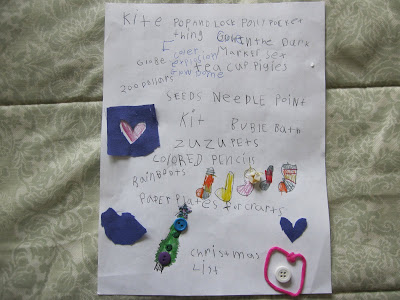 Kite POP AND LOCK Poll/PUCKER
thing Glow In the Dark
Marker Set
Globe
tea cup Pigies
200 Dollars
SEEDS NEEDLE POINT
Kit BUBLE BATH
ZUZUPETS
COLORED PENCILS
RAINBOOTS
PaperPlates for crafts
christmas
List